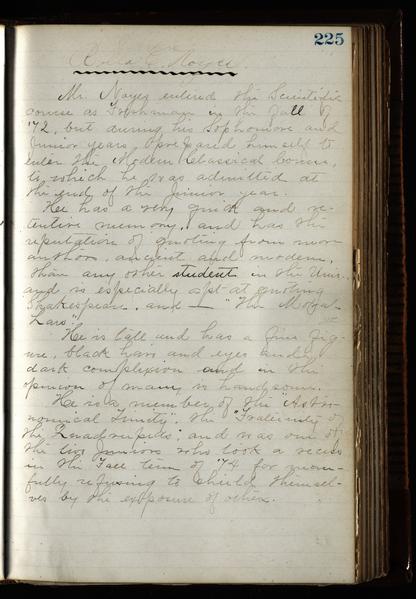 225
Noyes
Mr. Noyes entered the Scientific
course as Freshman in the Fall of
'72, but during his Sophomore and
Junior years, prepared himself to
enter the Modern Classical Course,
to which he was admitted at
the end of the Junior year.
He has a very quick and re-
tentive memory, and has the
reputation of quoting from more
authors, ancient and modern,
than any other student in the Univ.
and is especially apt at quoting
Shakespeare, and — "The
Lars".
He is tall and has a fine fig-
ure, black hair and eyes and
dark complexion and in the
opinion of many, is handsome.
He is a member of the "Astro-
nomical Trinity", the "Fraternity of
the Quadrupeds", and was one of
the ten Juniors who took a recess
in the Fall term of '74 for man-
fully refusing to shield themsel-
ves by the exposure of others.